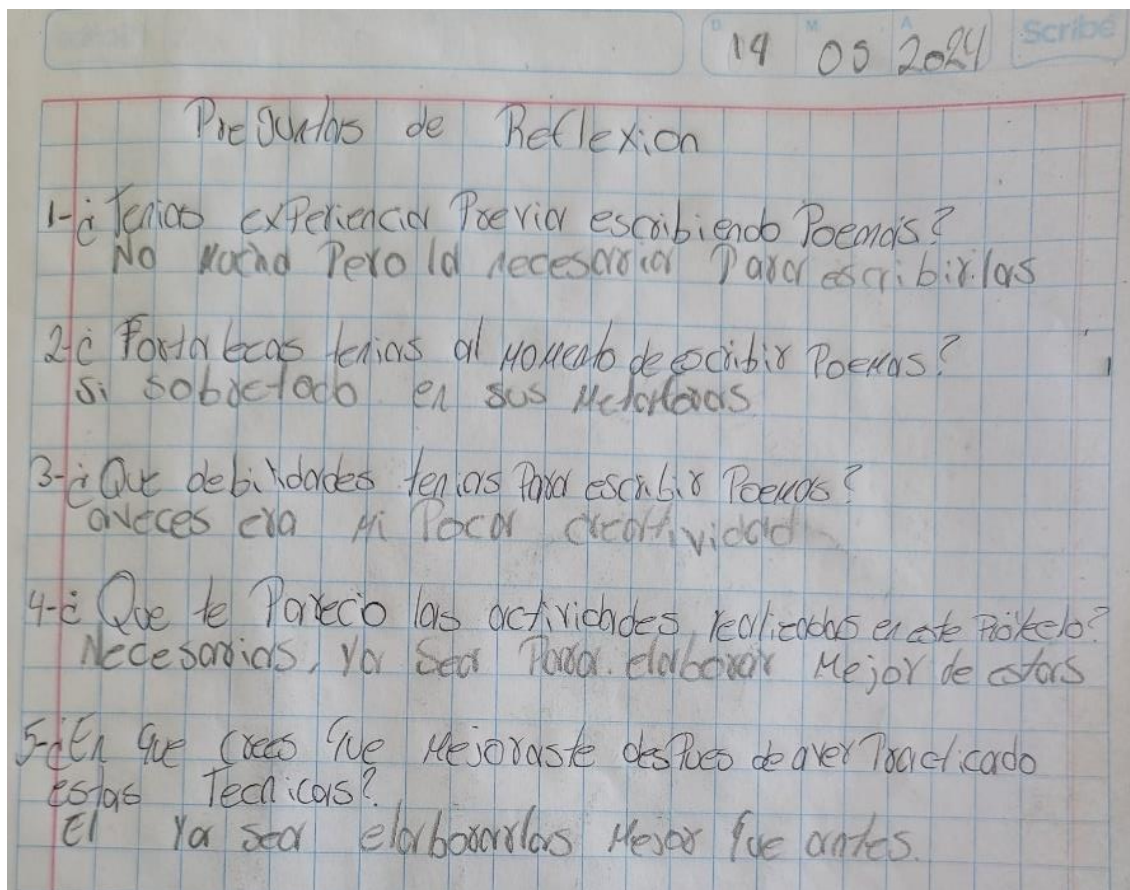 D 19 M 05 A 2024 Scribe
Preguntas de Reflexion
1-¿Tenias experiencia Previa escribiendo Poemas?
No mucha Pero la necesaria Para escribirlas
2-¿ Fortalezas tenias al momento de escribir Poemas?
Si sobretodo en sus Metaforas
3-¿Que debilidades tenias Para escribir Poemas?
aveces era mi Poca creatividad
4-¿ Que te Parecio las actividades realizadas en este
Necesarias, Ya sea Para elaborar Mejor de estas
5-¿En que crees que mejoraste despues de aver Practicado
estas Tecnicas?
El Ya sea elaborarlas mejor que antes.